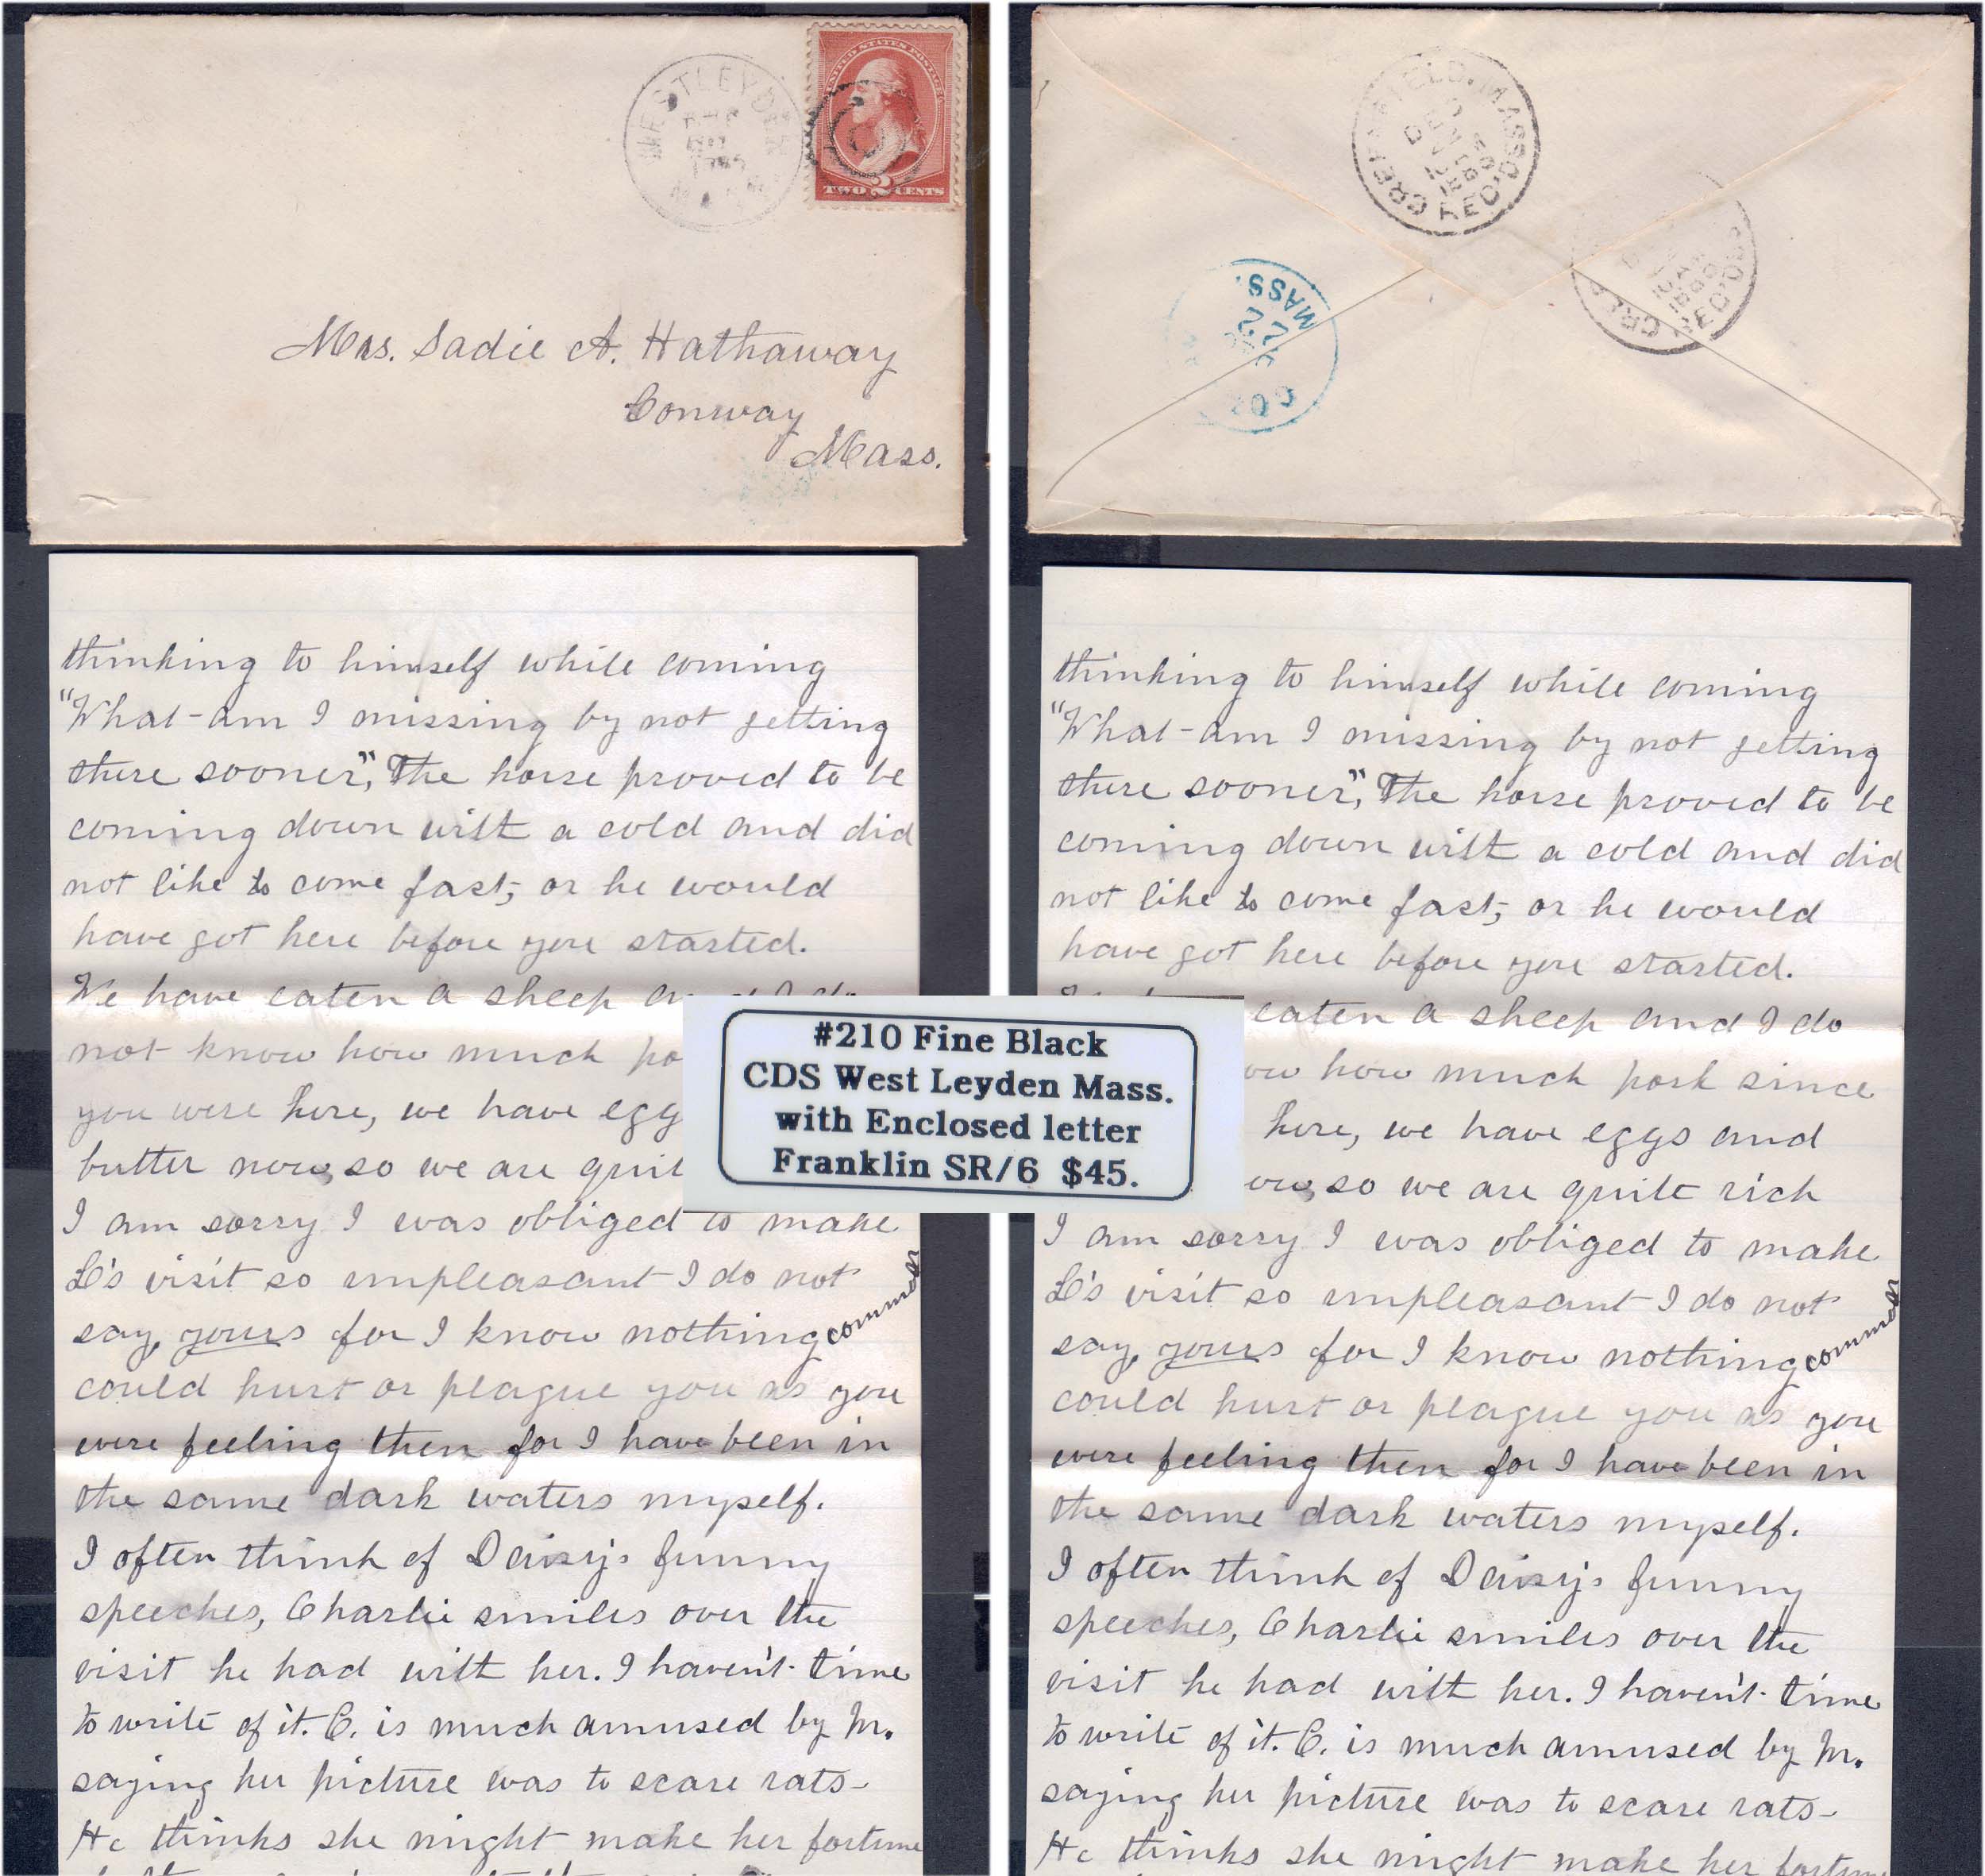 WEST LEYDEN
MASS.
UNITED STATES POSTAGE
TWO 2 CENTS
Mrs. Sadie A. Hathaway
Conway
Mass.
GREENFIELD. MASS.
DEC
REC'D
MASS.
22
REC'D
thinking to himself while coming
"What am I missing by not getting
there sooner", The horse proved to be
coming down with a cold and did
not like to come fast, or he would
have got here before you started.
We have eaten a sheep
not know how much
you were here, we have egg
butter now, so we are
I am sorry I was obliged to make
L's visit so unpleasant I do not
say yours for I know nothing common
could hurt or plague you as you
were feeling then for I have been in
the same dark waters myself.
I often think of Daisy's funny
speeches, Charlie smiles over the
visit he had with her. I haven't time
to write of it. C. is much amused by M.
saying her picture was to scare rats-
He thinks she might make her fortune
thinking to himself while coming
"What am I missing by not getting
there sooner", The horse proved to be
coming down with a cold and did
not like to come fast, or he would
have got here before you started.
eaten a sheep and I do
how much pork since
here, we have eggs and
so we are quite rich
I am sorry I was obliged to make
L's visit so unpleasant I do not
say yours for I know nothing common
could hurt or plague you as you
were feeling then for I have been in
the same dark waters myself.
I often think of Daisy's funny
speeches, Charlie smiles over the
visit he had with her. I haven't time
to write of it. C. is much amused by M.
saying her picture was to scare rats-
He thinks she might make her fortune
#210 Fine Black
CDS West Leyden Mass.
with Enclosed letter
Franklin SR/6 $45.